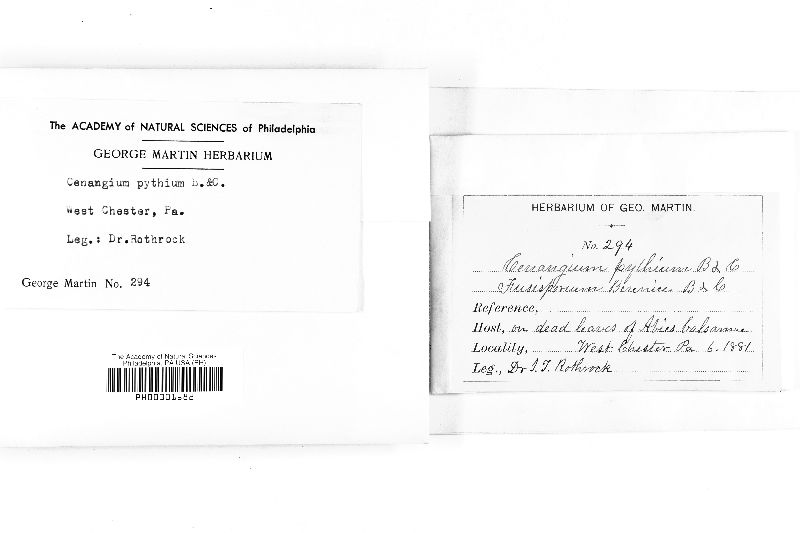 The ACADEMY of NATURAL SCIENCES of Philadelphia
GEORGE MARTIN HERBARIUM
Cenangium pythium B.&C.
West Chester, Pa.
Leg.: Dr.Rothrock
George Martin No. 294
The Academy of Natural Sciences
Philadelphia, PA USA (PH)
HERBARIUM OF GEO. MARTIN.
No. 294
Cenangium pythium B & C
Fusisporium Berenice B & C
Reference,
Host, on dead leaves of Abies balsamea
Locality, West Chester Pa 6. 1881
Leg., Dr J. T. Rothrock